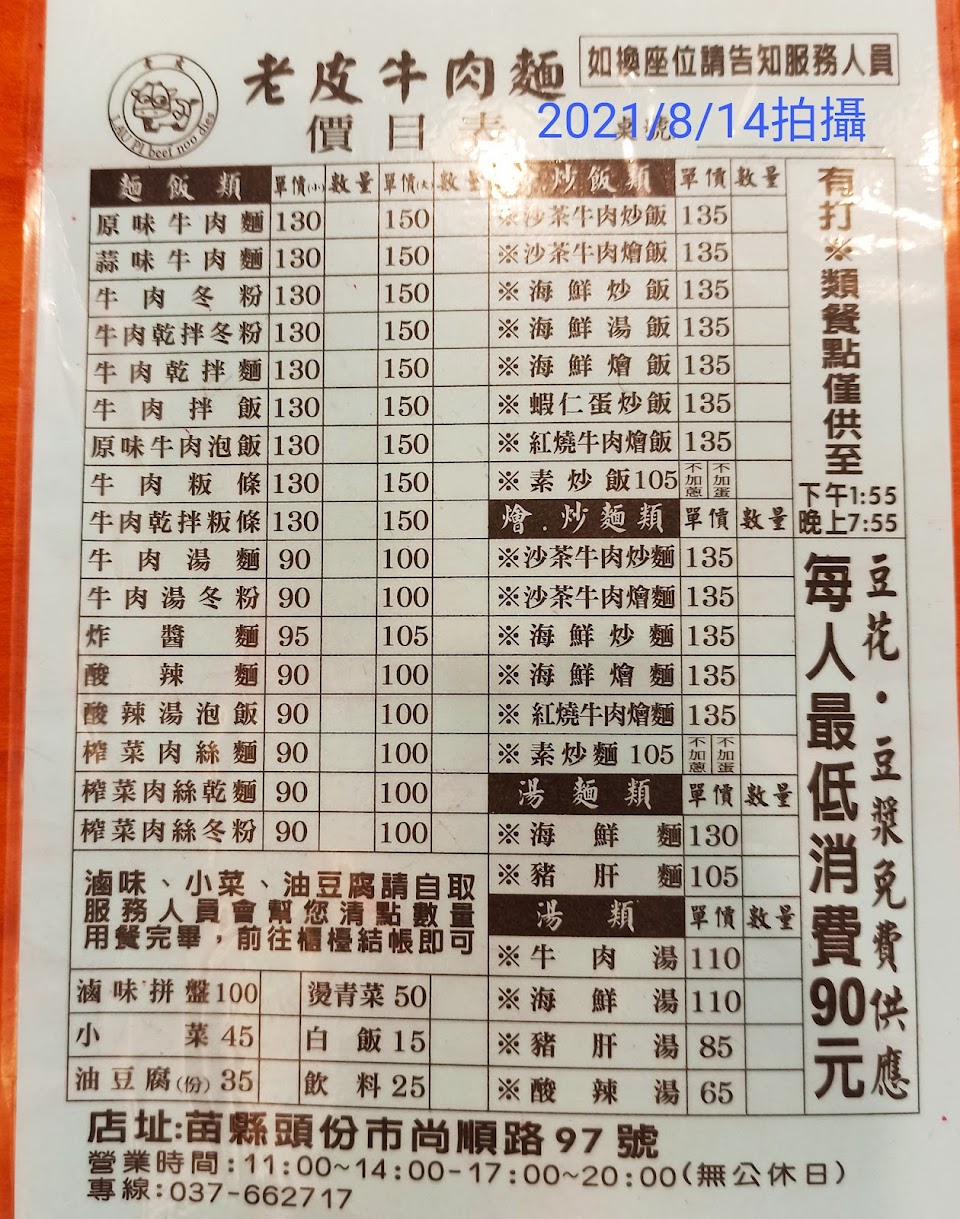 老皮
LAU PI beef noo dles
老皮牛肉麵
如換座位請告知服務人員
價目表
桌號
2021/8/14拍攝
麵飯類 單價(小) 數量 單價(大) 數量
原味牛肉麵 130 150
蒜味牛肉麵 130 150
牛肉冬粉 130 150
牛肉乾拌冬粉 130 150
牛肉乾拌麵 130 150
牛肉拌飯 130 150
原味牛肉泡飯 130 150
牛肉粄條 130 150
牛肉乾拌粄條 130 150
牛肉湯麵 90 100
牛肉湯冬粉 90 100
炸醬麵 95 105
酸辣麵 90 100
酸辣湯泡飯 90 100
榨菜肉絲麵 90 100
榨菜肉絲乾麵 90 100
榨菜肉絲冬粉 90 100
滷味、小菜、油豆腐請自取
服務人員會幫您清點數量
用餐完畢，前往櫃檯結帳即可
滷味拼盤100 燙青菜50
小菜45 白飯15
油豆腐(份)35 飲料25
炒飯類 單價 數量
※沙茶牛肉炒飯 135
※沙茶牛肉燴飯 135
※海鮮炒飯 135
※海鮮湯飯 135
※海鮮燴飯 135
※蝦仁蛋炒飯 135
※紅燒牛肉燴飯 135
※素炒飯105 不加蔥 不加蛋
燴.炒麵類 單價 數量
※沙茶牛肉炒麵 135
※沙茶牛肉燴麵 135
※海鮮炒麵 135
※海鮮燴麵 135
※紅燒牛肉燴麵 135
※素炒麵105 不加蔥 不加蛋
湯麵類 單價 數量
※海鮮麵 130
※豬肝麵 105
湯類 單價 數量
※牛肉湯 110
※海鮮湯 110
※豬肝湯 85
※酸辣湯 65
有打※類餐點僅供至
下午1:55
晚上7:55
豆花・豆漿免費供應
每人最低消費90元
店址:苗縣頭份市尚順路97號
營業時間:11:00~14:00-17:00~20:00(無公休日)
專線:037-662717